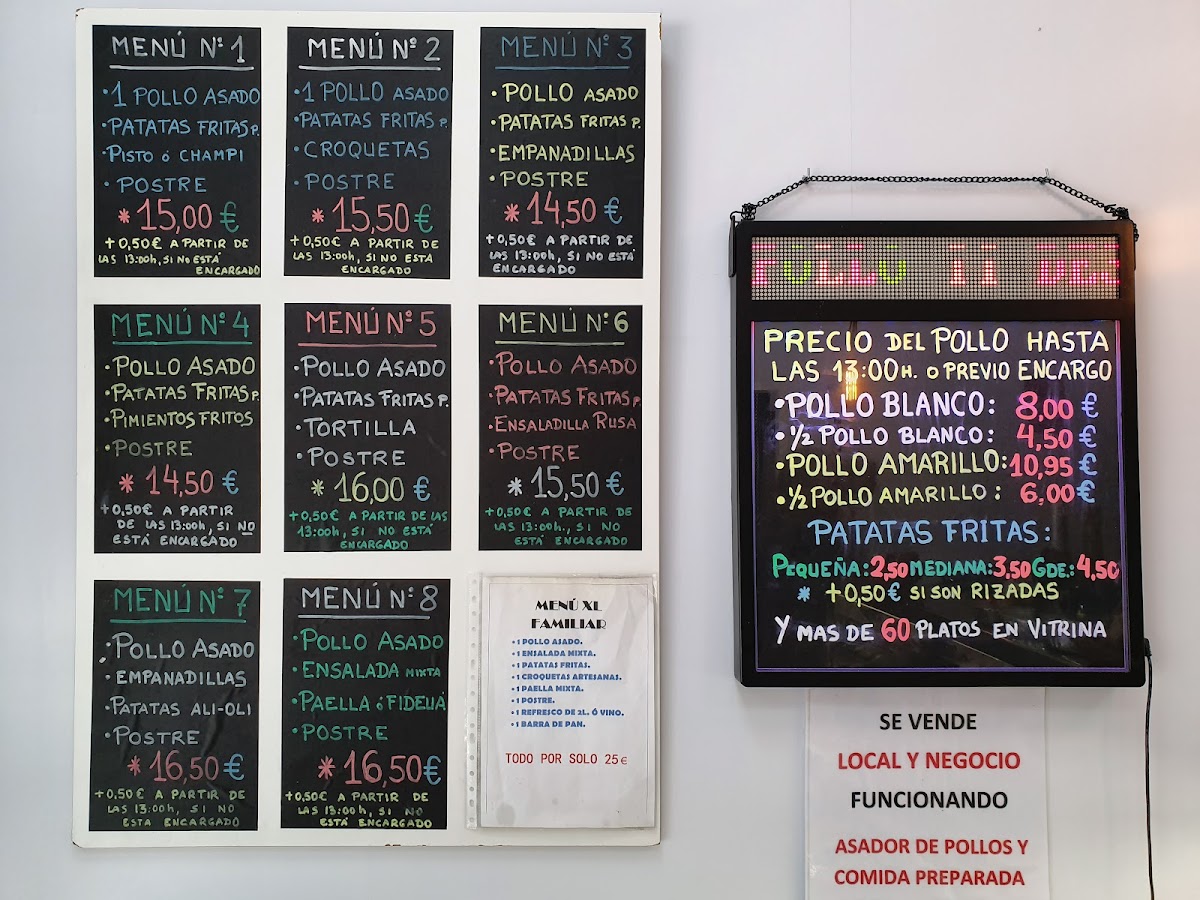 MENÚ Nº 1
• 1 POLLO ASADO
• PATATAS FRITAS P.
• PISTO ó CHAMPI
• POSTRE
* 15,00 €
+ 0,50€ A PARTIR DE
LAS 13:00h, SI NO ESTÁ
ENCARGADO
MENÚ Nº 2
• 1 POLLO ASADO
• PATATAS FRITAS P.
• CROQUETAS
• POSTRE
* 15,50 €
+ 0,50€ A PARTIR DE
LAS 13:00h, SI NO ESTÁ
ENCARGADO
MENÚ Nº 3
• POLLO ASADO
• PATATAS FRITAS P.
• EMPANADILLAS
• POSTRE
* 14,50 €
+ 0,50€ A PARTIR DE
LAS 13:00h, SI NO ESTÁ
ENCARGADO
MENÚ Nº 4
• POLLO ASADO
• PATATAS FRITAS P.
• PIMIENTOS FRITOS
• POSTRE
* 14,50 €
+ 0,50€ A PARTIR
DE LAS 13:00h, SI NO
ESTÁ ENCARGADO
MENÚ Nº 5
• POLLO ASADO
• PATATAS FRITAS P.
• TORTILLA
• POSTRE
* 16,00 €
+ 0,50€ A PARTIR DE LAS
13:00h, SI NO ESTÁ
ENCARGADO
MENÚ Nº 6
• POLLO ASADO
• PATATAS FRITAS P.
• ENSALADILLA RUSA
• POSTRE
* 15,50 €
+ 0,50€ A PARTIR DE
LAS 13:00h., SI NO
ESTÁ ENCARGADO
MENÚ Nº 7
• POLLO ASADO
• EMPANADILLAS
• PATATAS ALI-OLI
• POSTRE
* 16,50 €
+ 0,50€ A PARTIR DE
LAS 13:00h, SI NO
ESTA ENCARGADO
MENÚ Nº 8
• POLLO ASADO
• ENSALADA MIXTA
• PAELLA ó FIDEUÁ
• POSTRE
* 16,50 €
+ 0,50€ A PARTIR DE
LAS 13:00h, SI NO
ESTÁ ENCARGADO
MENÚ XL
FAMILIAR
• 1 POLLO ASADO.
• 1 ENSALADA MIXTA.
• 1 PATATAS FRITAS.
• 1 CROQUETAS ARTESANAS.
• 1 PAELLA MIXTA.
• 1 POSTRE.
• 1 REFRESCO DE 2L. Ó VINO.
• 1 BARRA DE PAN.
TODO POR SOLO 25€
PRECIO DEL POLLO HASTA
LAS 13:00H. O PREVIO ENCARGO
• POLLO BLANCO: 8,00 €
• ½ POLLO BLANCO: 4,50 €
• POLLO AMARILLO: 10,95 €
• ½ POLLO AMARILLO: 6,00 €
PATATAS FRITAS:
PEQUEÑA: 2,50 MEDIANA: 3,50 GDE.: 4,50
* +0,50€ SI SON RIZADAS
Y MAS DE 60 PLATOS EN VITRINA
SE VENDE
LOCAL Y NEGOCIO
FUNCIONANDO
ASADOR DE POLLOS Y
COMIDA PREPARADA